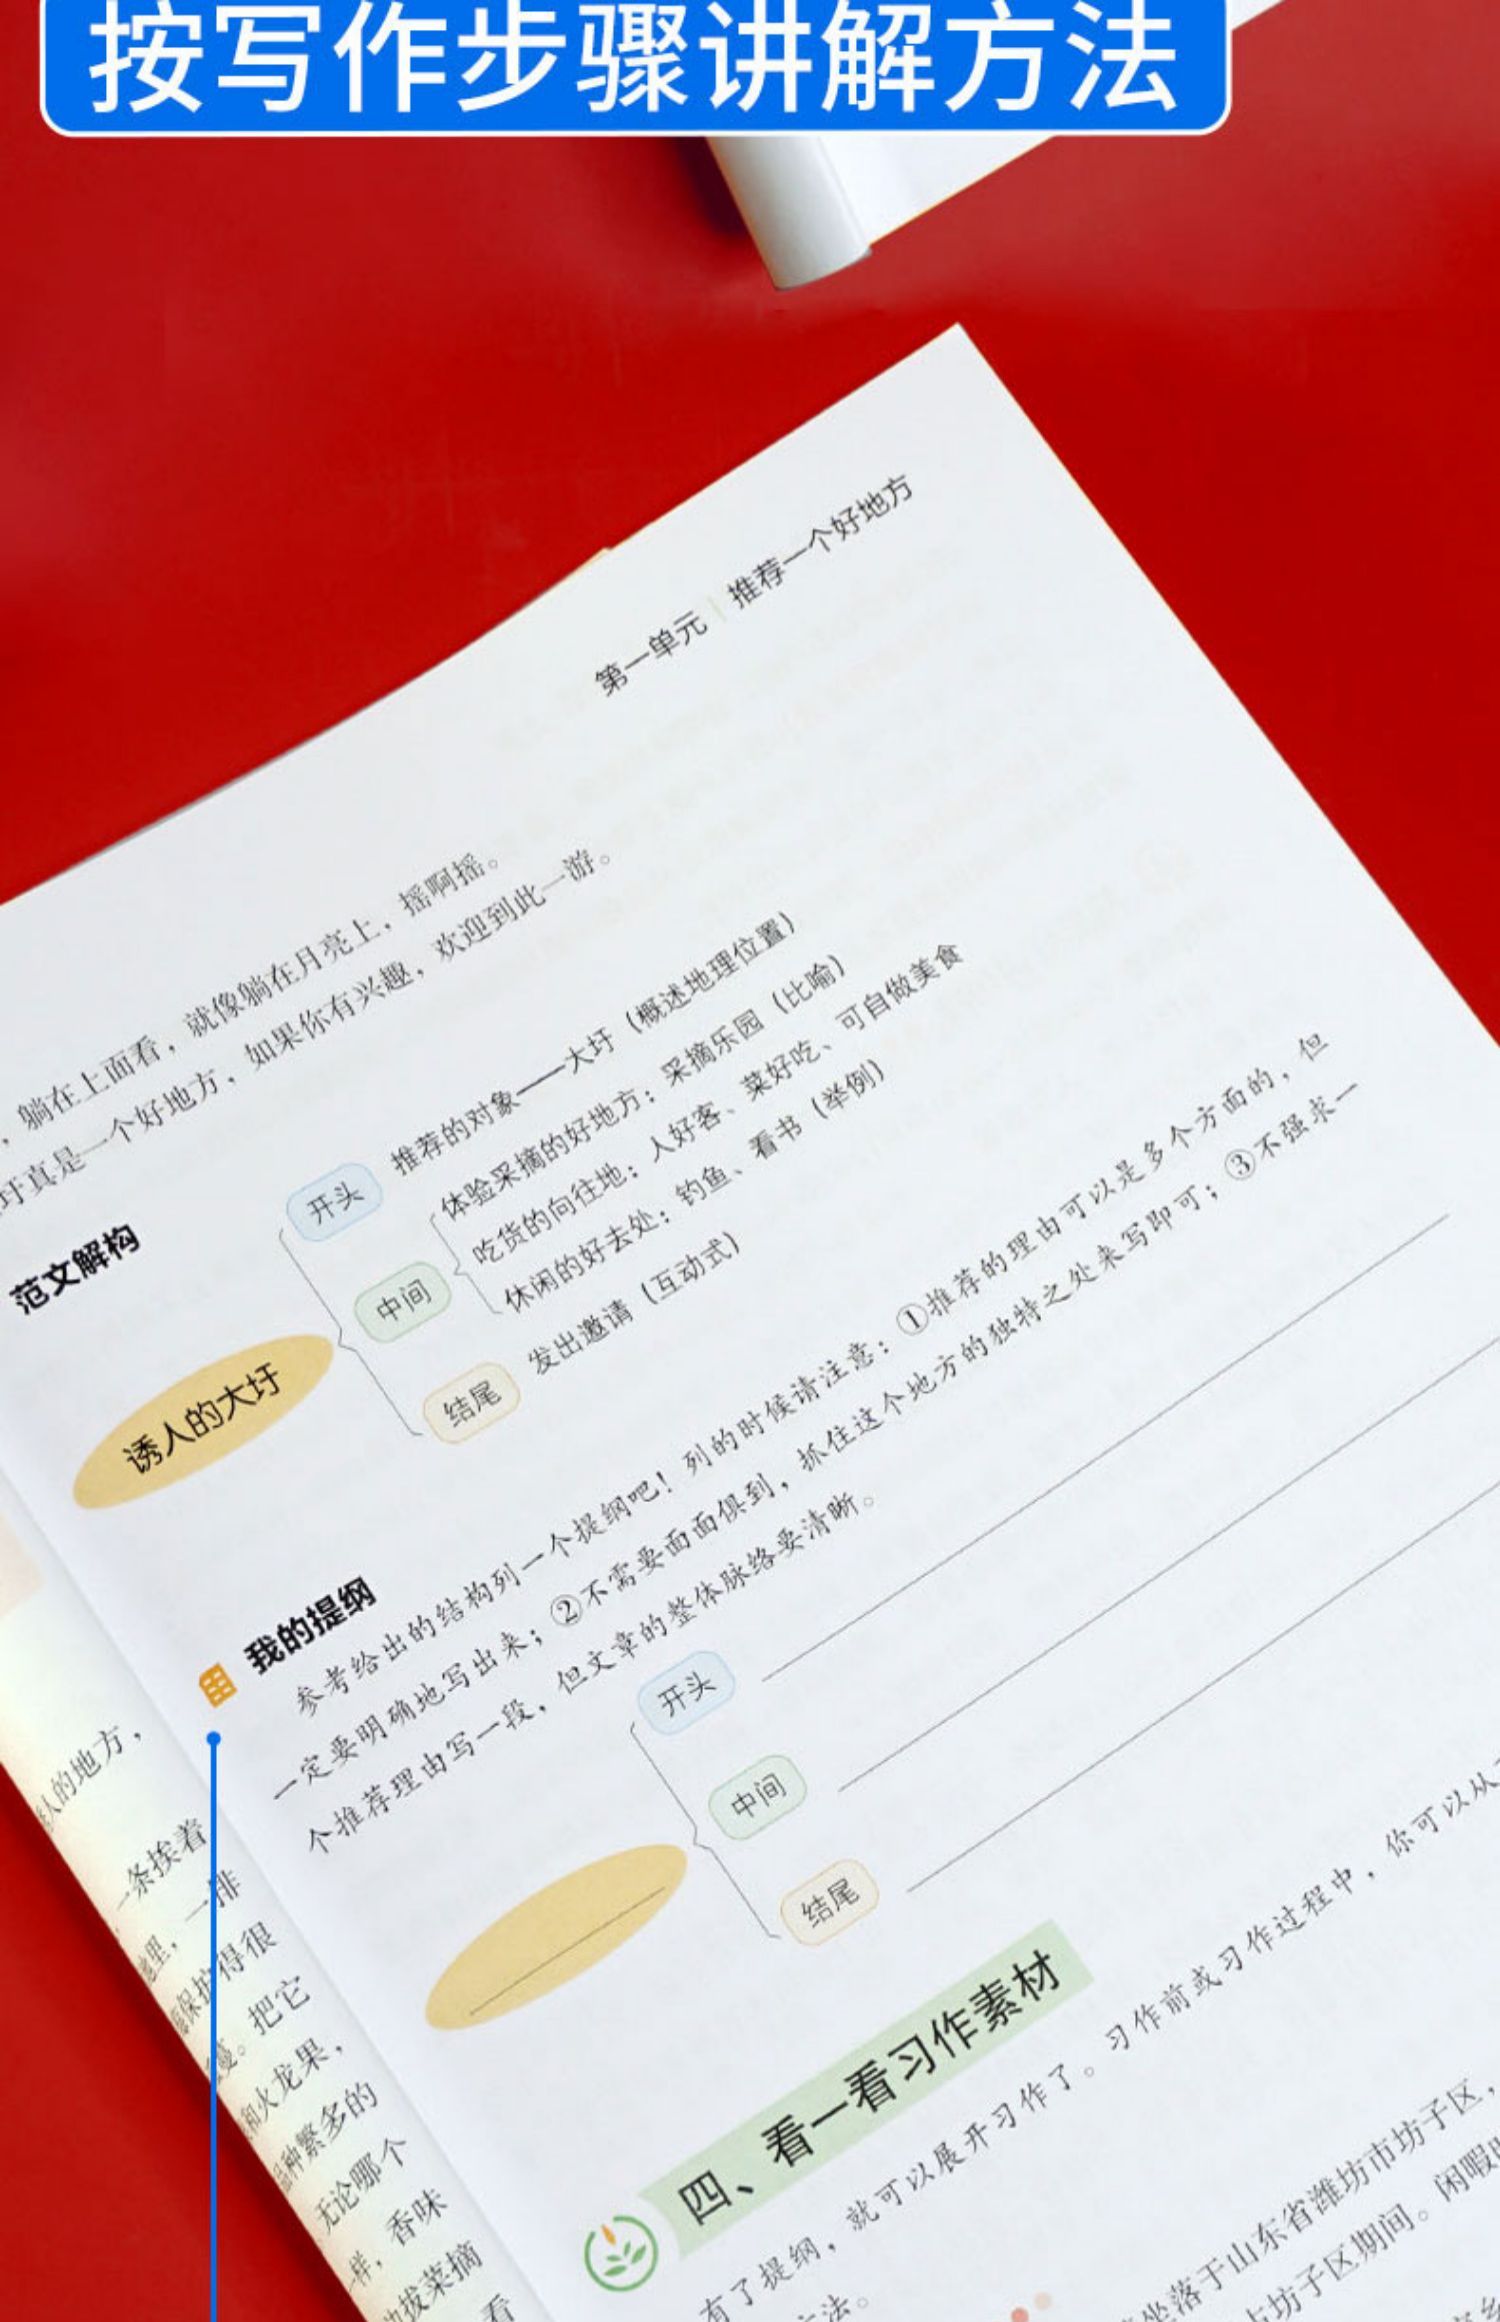 按写作步骤讲解方法
第一单元 | 推荐一个好地方
，躺在上面看，就像躺在月亮上，摇啊摇。
圩真是一个好地方，如果你有兴趣，欢迎到此一游。
范文解构
诱人的大圩
开头 推荐的对象——大圩（概述地理位置）
中间
体验采摘的好地方：采摘乐园（比喻）
吃货的向往地：人好客、菜好吃、可自做美食
休闲的好去处：钓鱼、看书（举例）
结尾 发出邀请（互动式）
我的提纲
参考给出的结构列一个提纲吧！列的时候请注意：①推荐的理由可以是多个方面的，但
一定要明确地写出来；②不需要面面俱到，抓住这个地方的独特之处来写即可；③不强求一
个推荐理由写一段，但文章的整体脉络要清晰。
开头
中间
结尾
四、看一看习作素材
有了提纲，就可以展开习作了。习作前或习作过程中，你可以从
方法。
坐落于山东省潍坊市坊子区，
坊子区期间。闲暇
人的地方，
一条挨着
地里，一排
保护得很
。把它
和火龙果，
品种繁多的
无论哪个
样，香味
拔菜摘
看